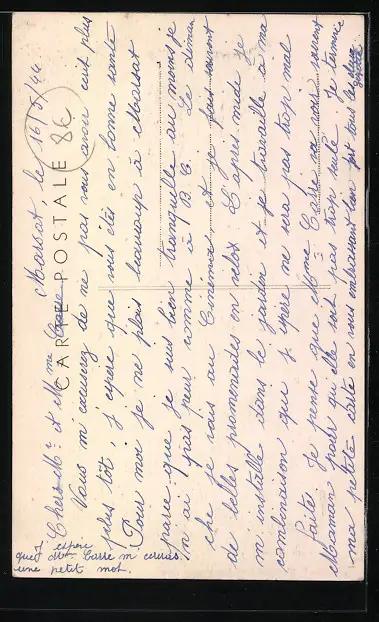 Marsat, le 16/5/44
CARTE POSTALE
Chers Mr. et Mme Carre
Vous m'excurez de ne pas vous avoir ecrit plus
plus tôt, j'espere que vous êtes en bonne santé
Pour moi je me plais beaucoup à Marsat
parce que je suis bien tranquille au moins je
n'ai pas peur comme à B. C. Le diman
che je vais au Cinema, et je fais souvent
de belles promenades en velos. L'apres midi je
m'installe dans le jardin et je travaille à ma
combinaison que j'espere ne sera pas trop mal
faite. Je pense que Mme Carre va voir souvent
Maman pour qu'elle soit pas trop seule. Je termine
ma petite carte en vous embrassant bien fort tous les deux
J'espere
que Mme Carre m'ecriras
une petit mot.
8€